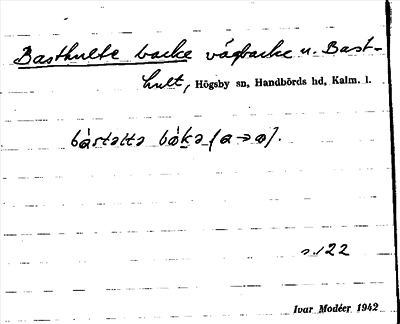 Basthulte backe vägbacke n. Bast-
hult, Högsby sn, Handbörds hd, Kalm. l.
bástəltə bákə (a→ɑ).
s. 122
Ivar Modéer 1942